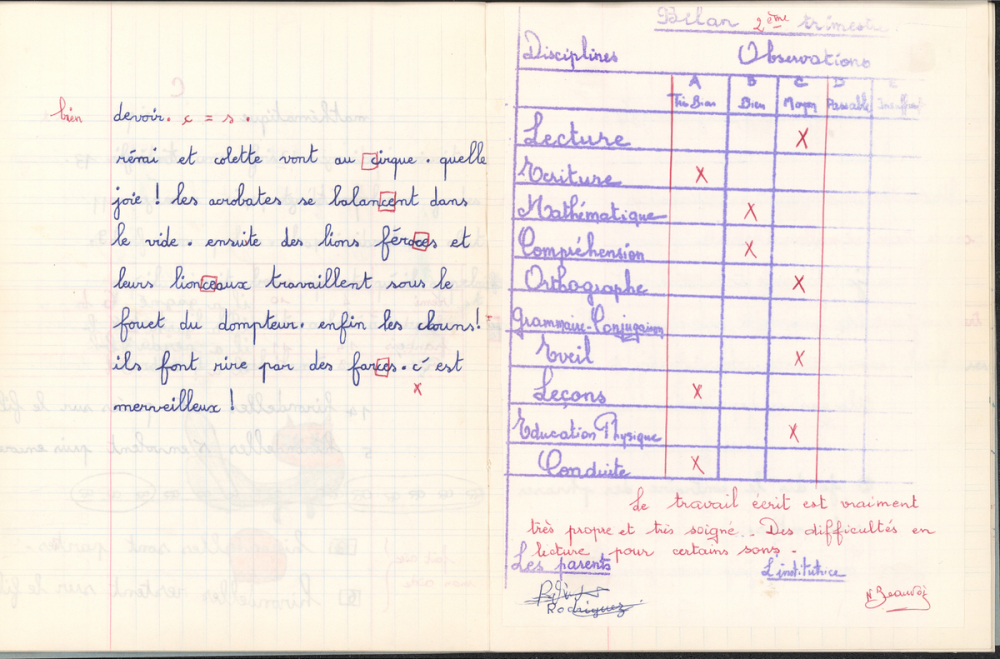 bien
devoir. c = s.
rérai et colette vont au cirque. quelle
joie ! les acrobates se balancent dans
le vide. ensuite des lions féroces et
leurs lionceaux travaillent sous le
fouet du dompteur. enfin les clowns !
ils font rire par des farces. c'est
x
merveilleux !
Bilan 2ème trimestre
Disciplines Observations
A B C D E
Très Bien Bien Moyen Passable Insuffisant
Lecture X
Ecriture X
Mathématique X
Compréhension X
Orthographe X
Grammaire-Conjugaison
Eveil X
Leçons X
Education Physique X
Conduite X
Le travail écrit est vraiment
très propre et très soigné. Des difficultés en
lecture pour certains sons.
Les parents L'institutrice
Rodriguez